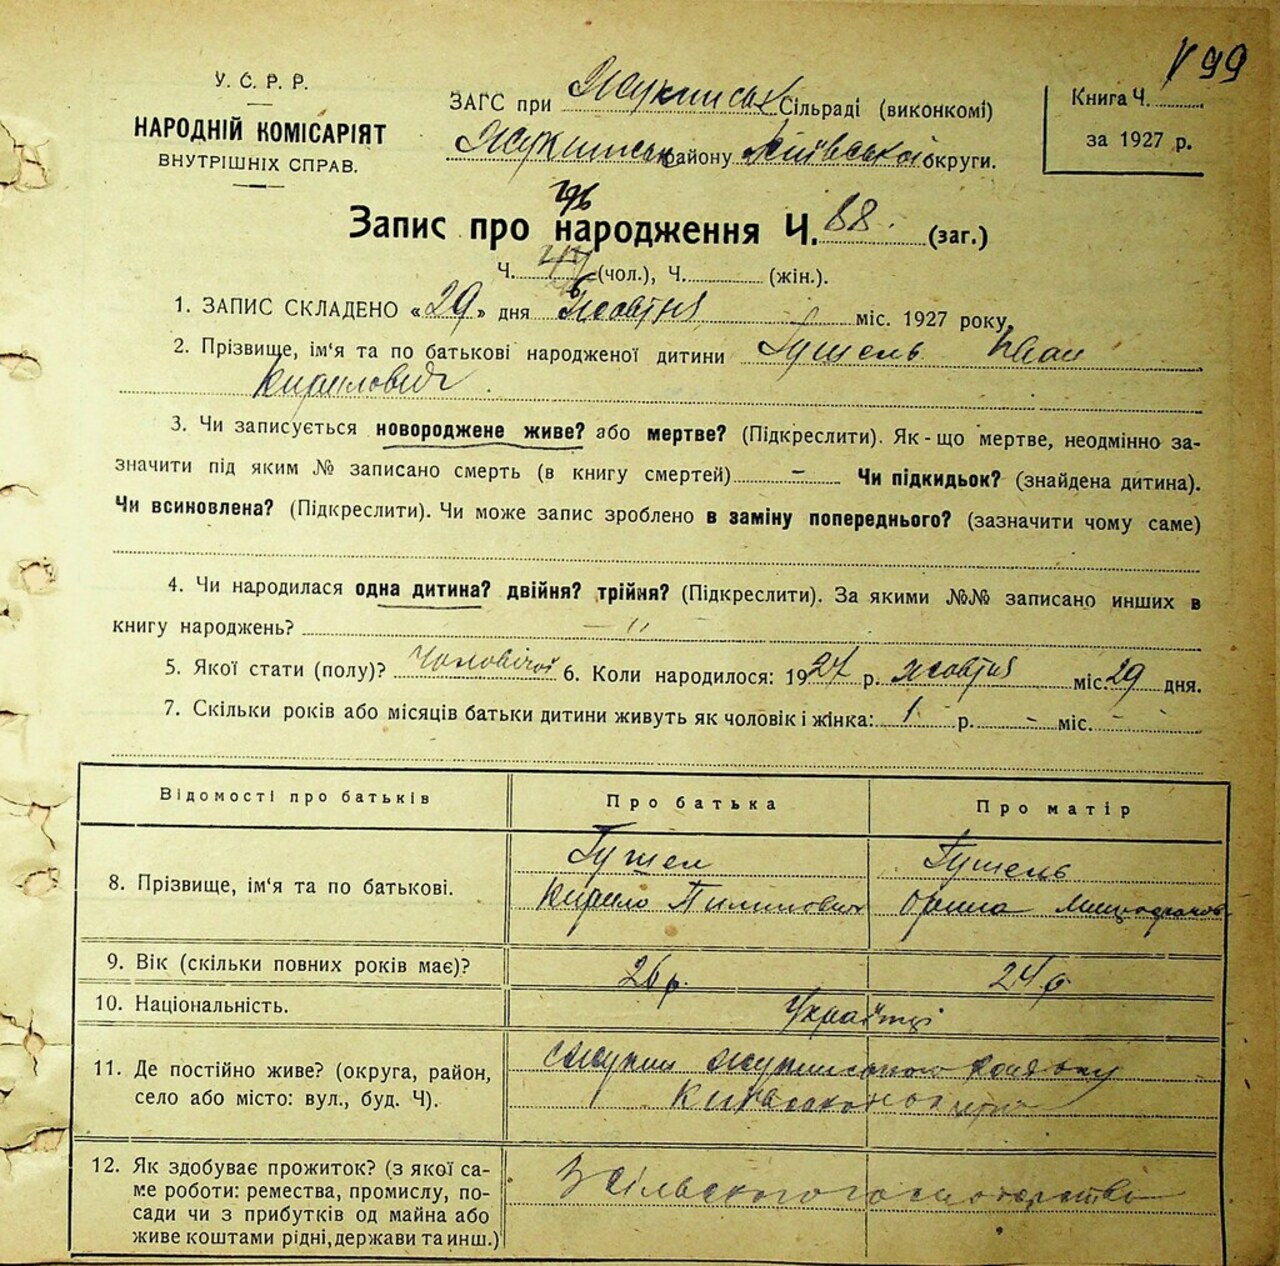 У. С. Р. Р.
НАРОДНІЙ КОМІСАРІЯТ
ВНУТРІШНІХ СПРАВ.
99
ЗАГС при Сільраді (виконкомі)
району Київської округи.
Книга Ч.
за 1927 р.
Запис про народження Ч. 88. (заг.)
Ч. (чол.), Ч. (жін.).
1. ЗАПИС СКЛАДЕНО «29» дня жовтня міс. 1927 року.
2. Прізвище, ім'я та по батькові народженої дитини Гушель Іван
Кирилович.
3. Чи записується новороджене живе? або мертве? (Підкреслити). Як-що мертве, неодмінно за-
значити під яким № записано смерть (в книгу смертей) – Чи підкидьок? (знайдена дитина).
Чи всиновлена? (Підкреслити). Чи може запис зроблено в заміну попереднього? (зазначити чому саме)
4. Чи народилася одна дитина? двійня? трійня? (Підкреслити). За якими №№ записано инших в
книгу народжень? – "
5. Якої стати (полу)? Чоловічої 6. Коли народилося: 1927 р. жовтня міс. 29 дня.
7. Скільки років або місяців батьки дитини живуть як чоловік і жінка: 1 р. – міс. –
Відомості про батьків Про батька Про матір
8. Прізвище, ім'я та по батькові.
Гушел Гушель
Кирило Пилипович Орина
9. Вік (скільки повних років має)? 26 р. 24 р
10. Національність. Українці
11. Де постійно живе? (округа, район,
село або місто: вул., буд. Ч).
12. Як здобуває прожиток? (з якої са-
ме роботи: ремества, промислу, по-
сади чи з прибутків од майна або
живе коштами рідні, держави та инш.)
З сільського господарства